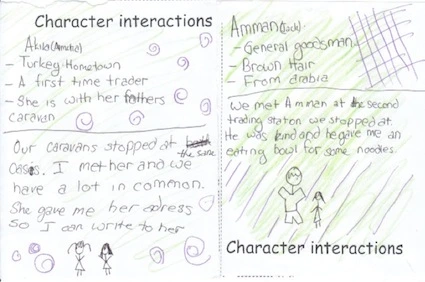 Character interactions
Akila (Amelia)
- Turkey Hometown
- A first time trader
- She is with her fathers
caravan
Our caravans stopped at the same
Oasis. I met her and we
have a lot in common.
She gave me her adress
So I can write to her
Amman (Jack)
- General goodsman
- Brown Hair
- From arabia
We met Amman at the second
trading staton we stopped at
He was kind and he gave me an
eating bowl for some noodles.
Character interactions